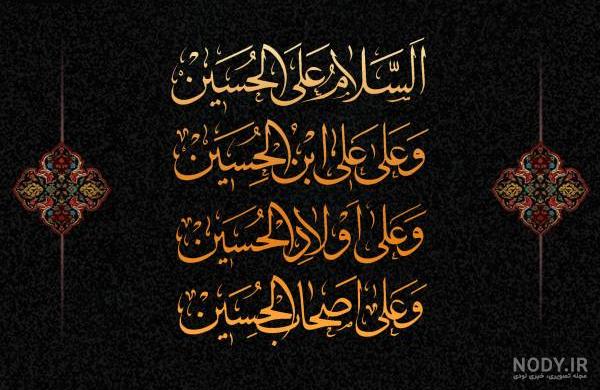 اَلسَّلامُ عَلَى الحُسَیْن
وَ عَلی عَلیِّ ابْنِ الحُسَیْن
وَ عَلی اَوْلادِ الحُسَیْن
وَ عَلی اَصْحابِ الحُسَیْن
NODY.IR
مجله تصویری، خبری نودی